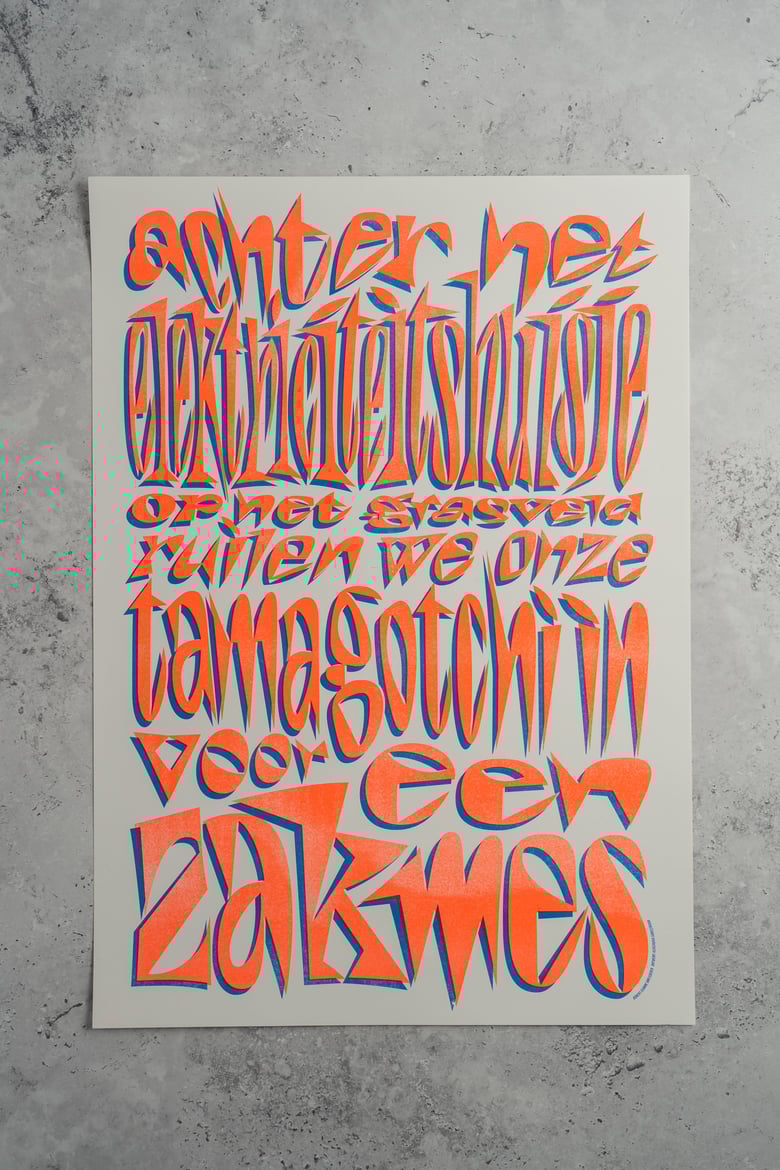 achter het
elektriciteitshuisje
op het grasveld
ruilen we onze
tamagotchi in
voor een
zakmes